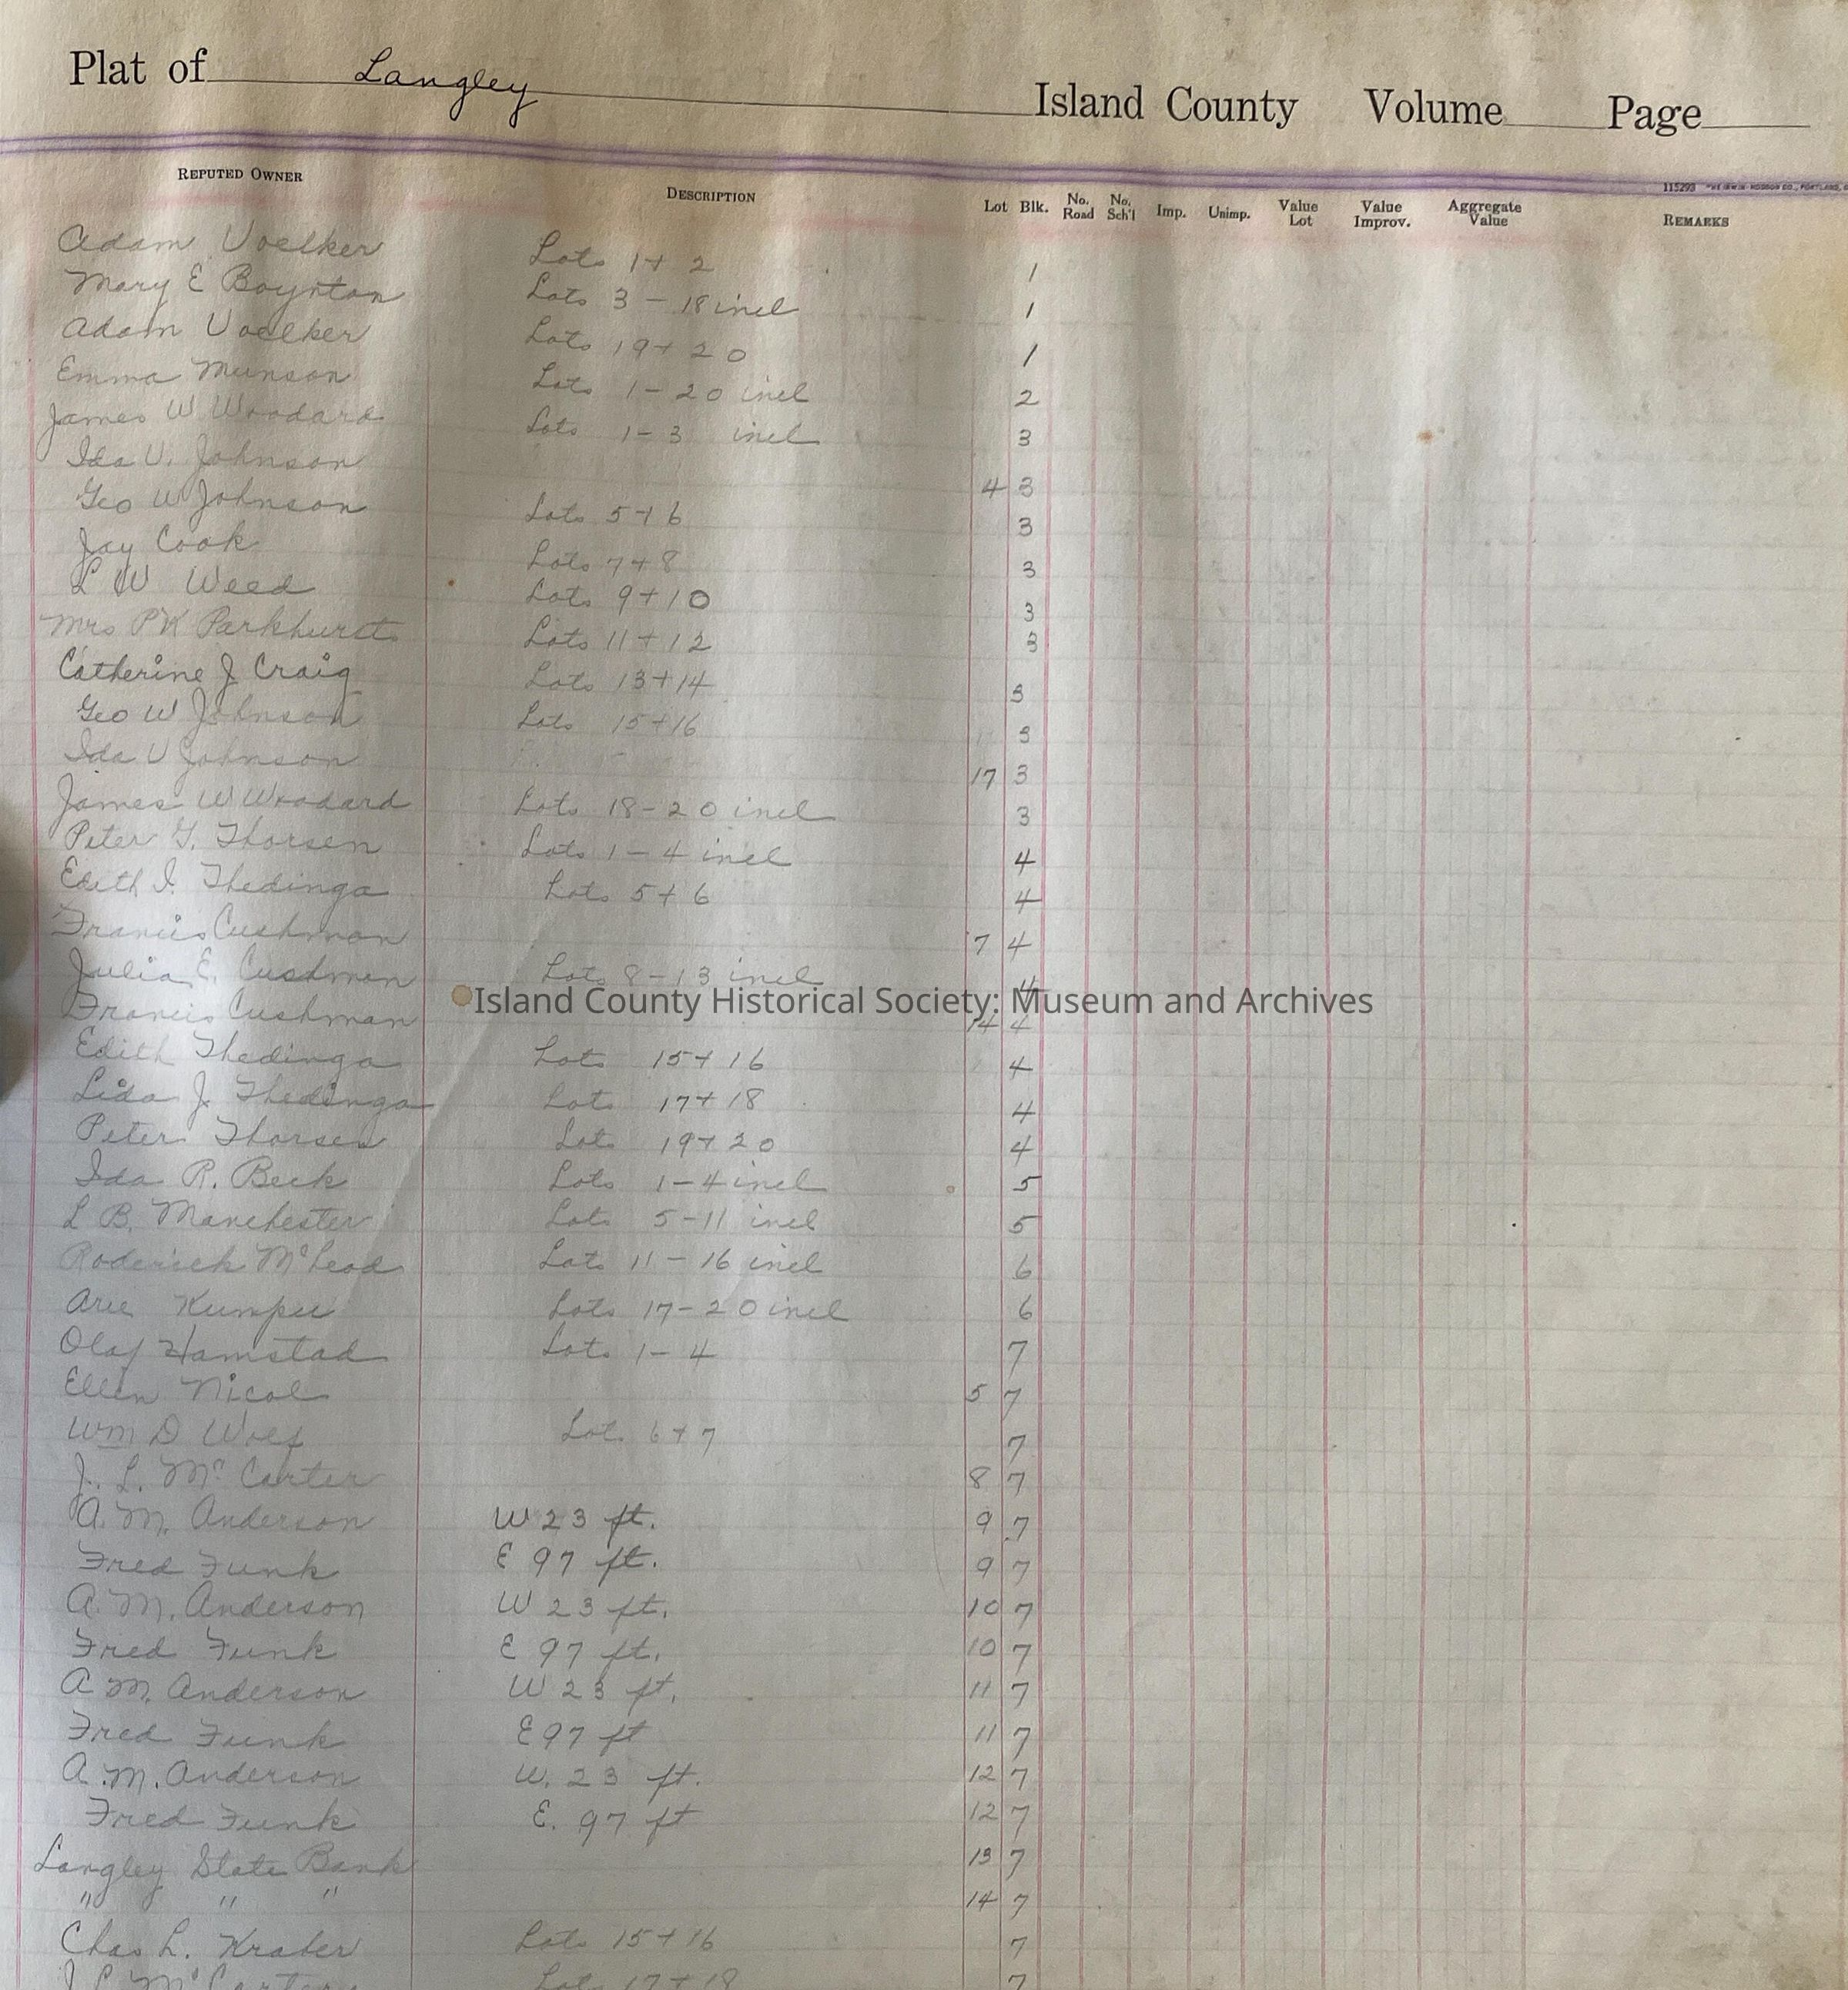 Plat of Langley Island County Volume Page
115293
REPUTED OWNER DESCRIPTION Lot Blk. No. Road No. Sch'l Imp. Unimp. Value Lot Value Improv. Aggregate Value REMARKS
Adam Voelker Lots 1 + 2 1
Mary E Boynton Lots 3 - 18 incl 1
Adam Voelker Lots 19 + 20 1
Emma Munson Lots 1 - 20 incl 2
James W Woodard Lots 1 - 3 incl 3
Ida V. Johnson 4 3
Geo W Johnson Lots 5 + 6 3
Jay Cook Lots 7 + 8 3
L W Weed Lots 9 + 10 3
Mrs PK Parkhurst Lots 11 + 12 3
Catherine J Craig Lots 13 + 14 3
Geo W Johnson Lots 15 + 16 3
Ida V Johnson 17 3
James W Woodard Lots 18 - 20 incl 3
Peter G. Thorsen Lots 1 - 4 incl 4
Edith I. Thedinga Lots 5 + 6 4
Francis Cushman 7 4
Julia E. Cushman Lots 8 - 13 incl 4
Island County Historical Society: Museum and Archives
Francis Cushman 14 4
Edith Thedinga Lots 15 + 16 4
Lida J. Thedinga Lots 17 + 18 4
Peter Thorsen Lots 19 + 20 4
Ida R. Beck Lots 1 - 4 incl 5
L B. Manchester Lots 5 - 11 incl 5
Roderick McLeod Lots 11 - 16 incl 6
Arie Kumpu Lots 17 - 20 incl 6
Olaf Hamstad Lots 1 - 4 7
Ellen Nicol 5 7
Wm D Wolf Lot 6 + 7 7
J. L. McCarter 8 7
A. M. Anderson W 23 ft. 9 7
Fred Funk E 97 ft. 9 7
A. M. Anderson W 23 ft. 10 7
Fred Funk E 97 ft. 10 7
A M. Anderson W 23 ft. 11 7
Fred Funk E 97 ft 11 7
A. M. Anderson W. 23 ft. 12 7
Fred Funk E. 97 ft 12 7
Langley State Bank 13 7
" " " 14 7
Chas L. Kraber Lots 15 + 16 7
J L McCarter Lot 17 + 18 7